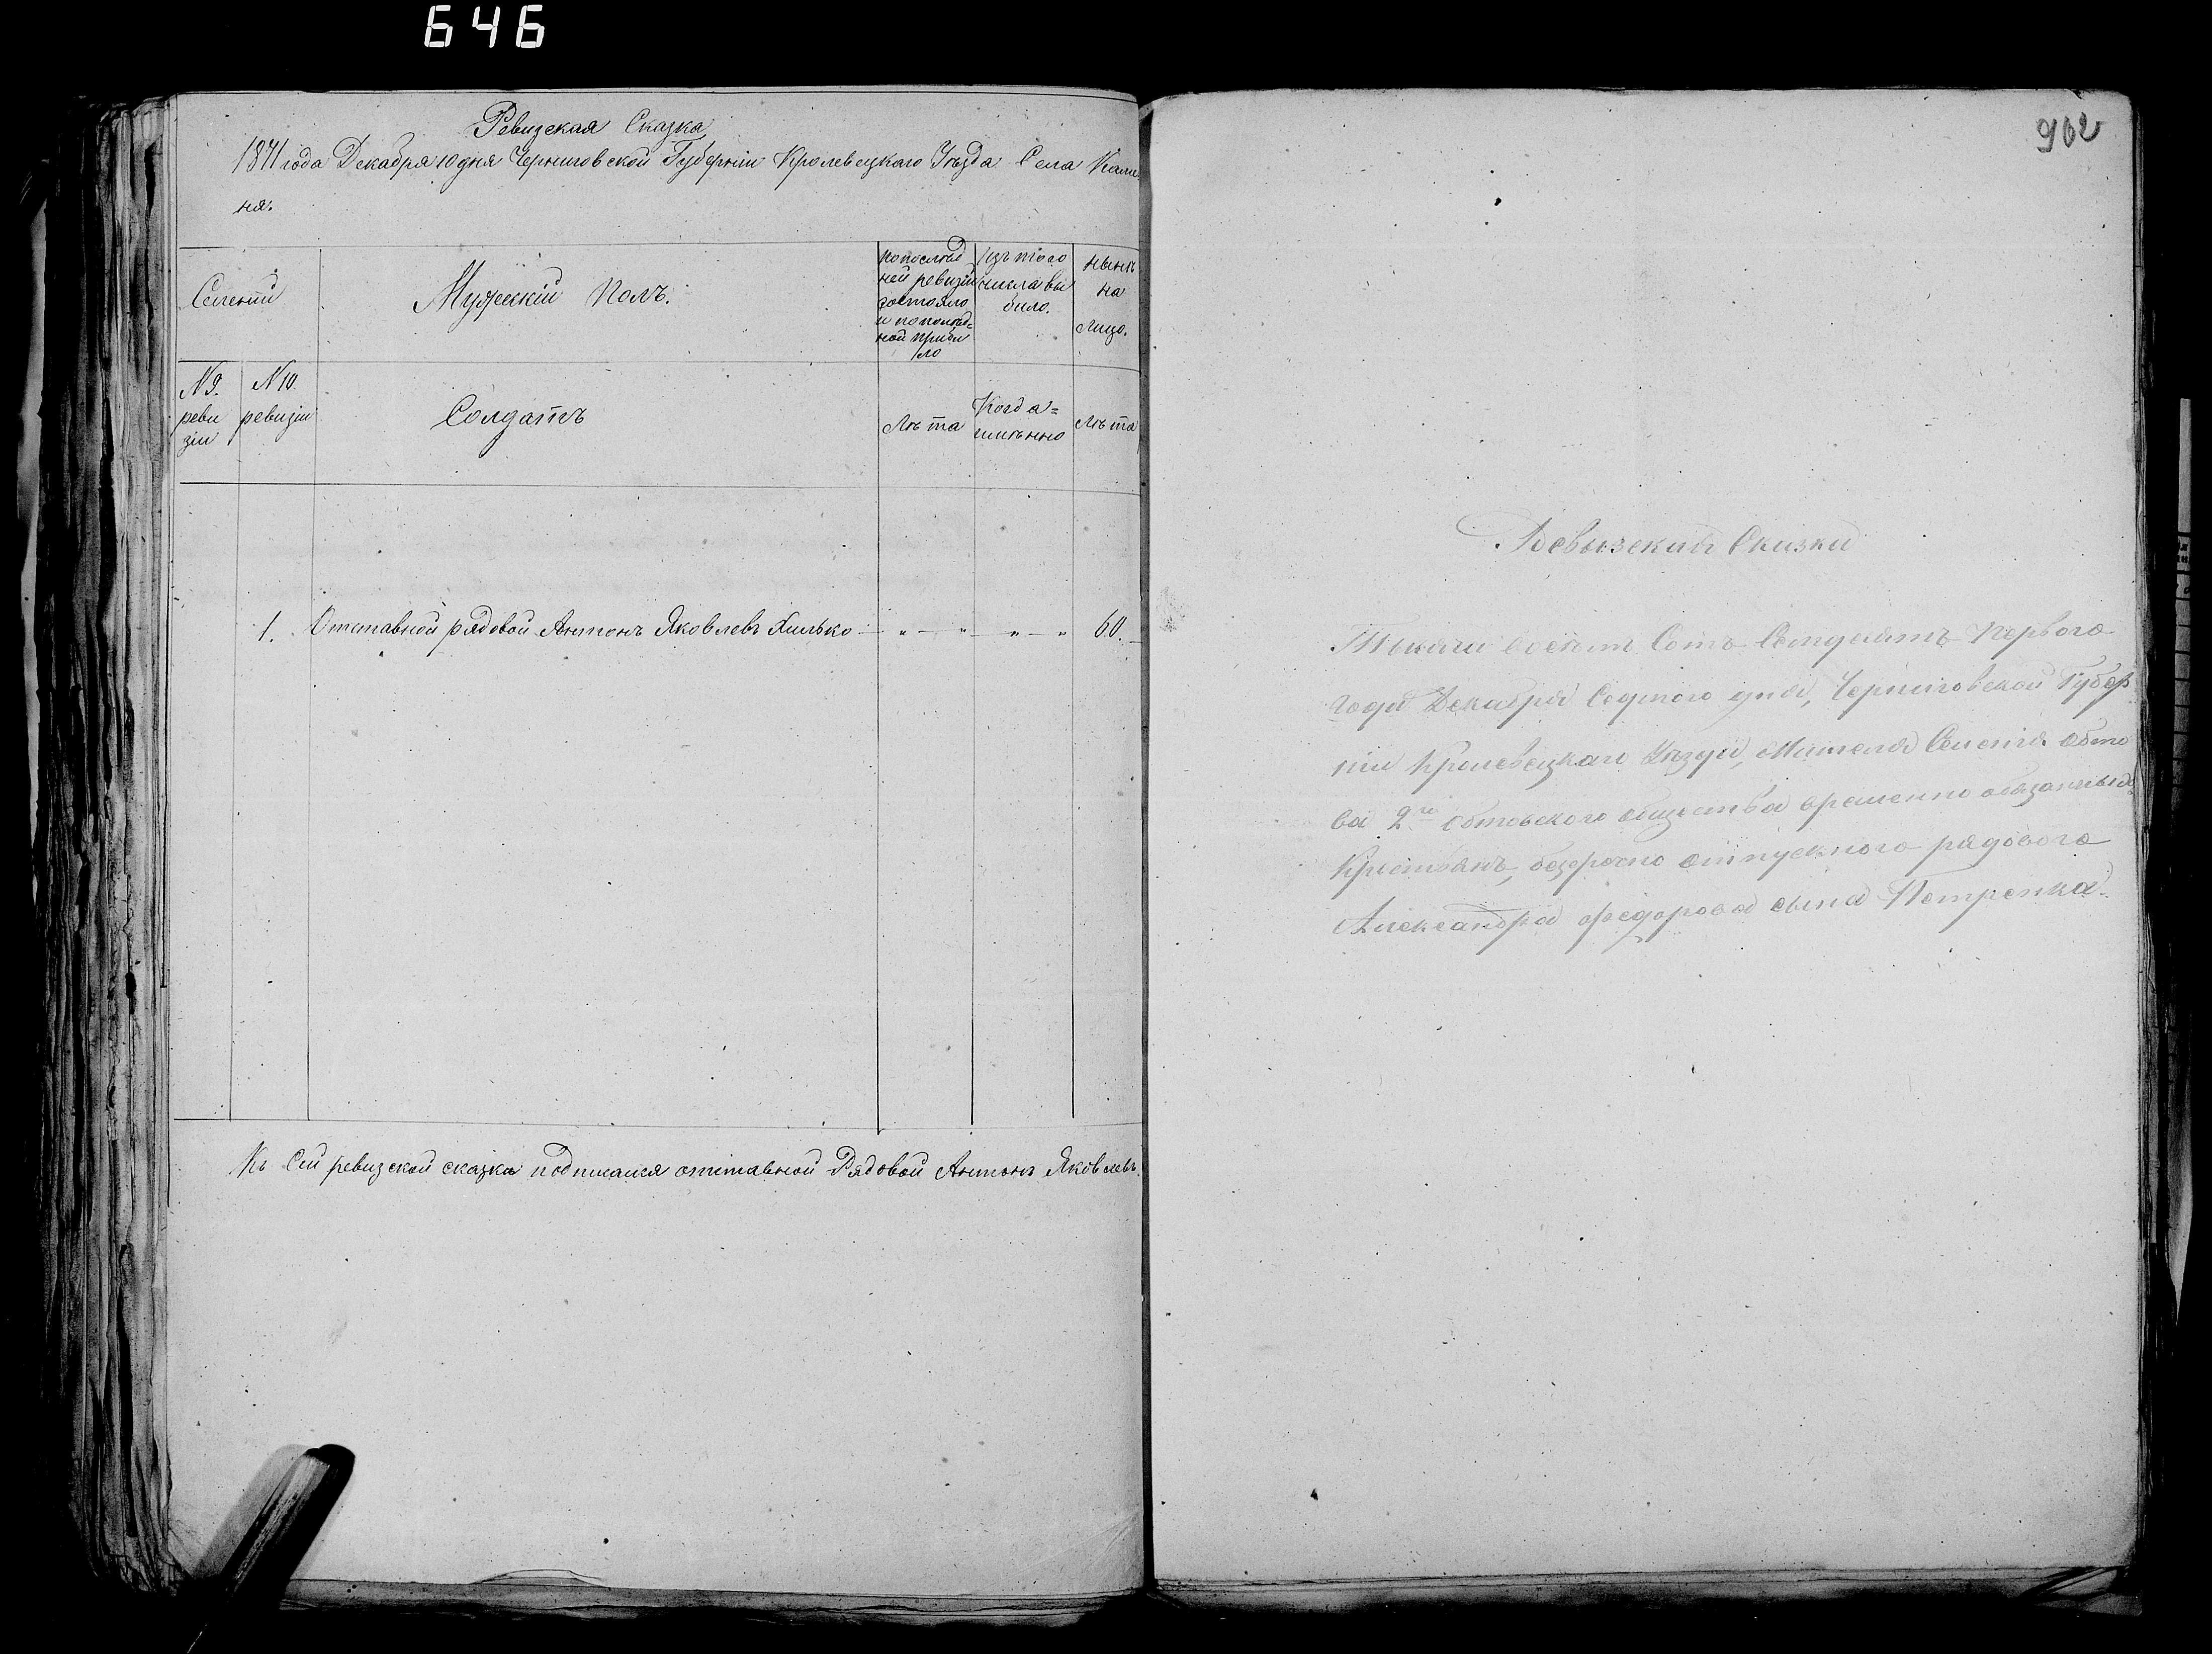 646
Ревизская Сказка
1871 года Декабря 10 дня Черниговской Губерніи Кролевецкаго Уѣзда Села
ня.
Мужескій Полъ.
по послѣд
ней ревизіи
состояло
и по
ной прибы
ло
изъ того
числа вы
было.
нынѣ
на
лицо.
N 9.
реви
зіи
N 10.
ревизіи
Солдатъ
Лѣта
Когда=
именно
Лѣта
1. Отставной рядовой Антонъ Яковлевъ Хилько — „ — „ — „ — „ 60. —
Къ сей ревизской сказки подписался отставной Рядовой Антонъ Яковлевъ
902
Ревизская Сказка
Тысяча восемь Сотъ Семдесятъ Первого
года Декабря Седмого дня, Черниговской Губер
ніи Кролевецкаго Уѣзда, Жителя Селенія Обто
ва 2го Обтовского общества временно обязанныхъ
Крестьянъ, безсрочно отпускного рядового
Александра Федорова сына Петренка.